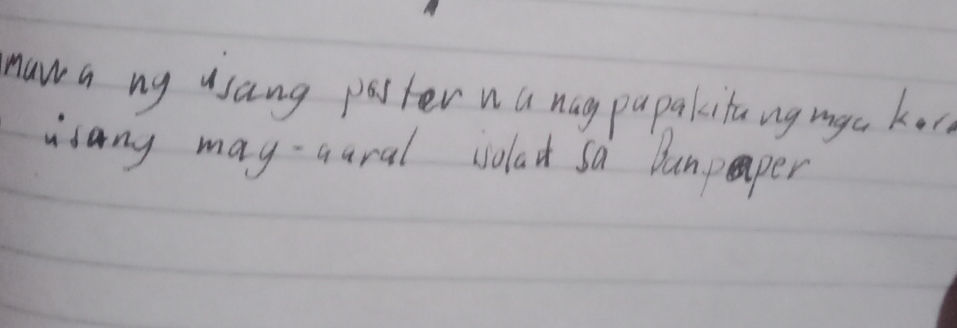 muwa ng isang poster na nagpapakita ng mga kara
isang mag-aaral isolat sa Banpaper